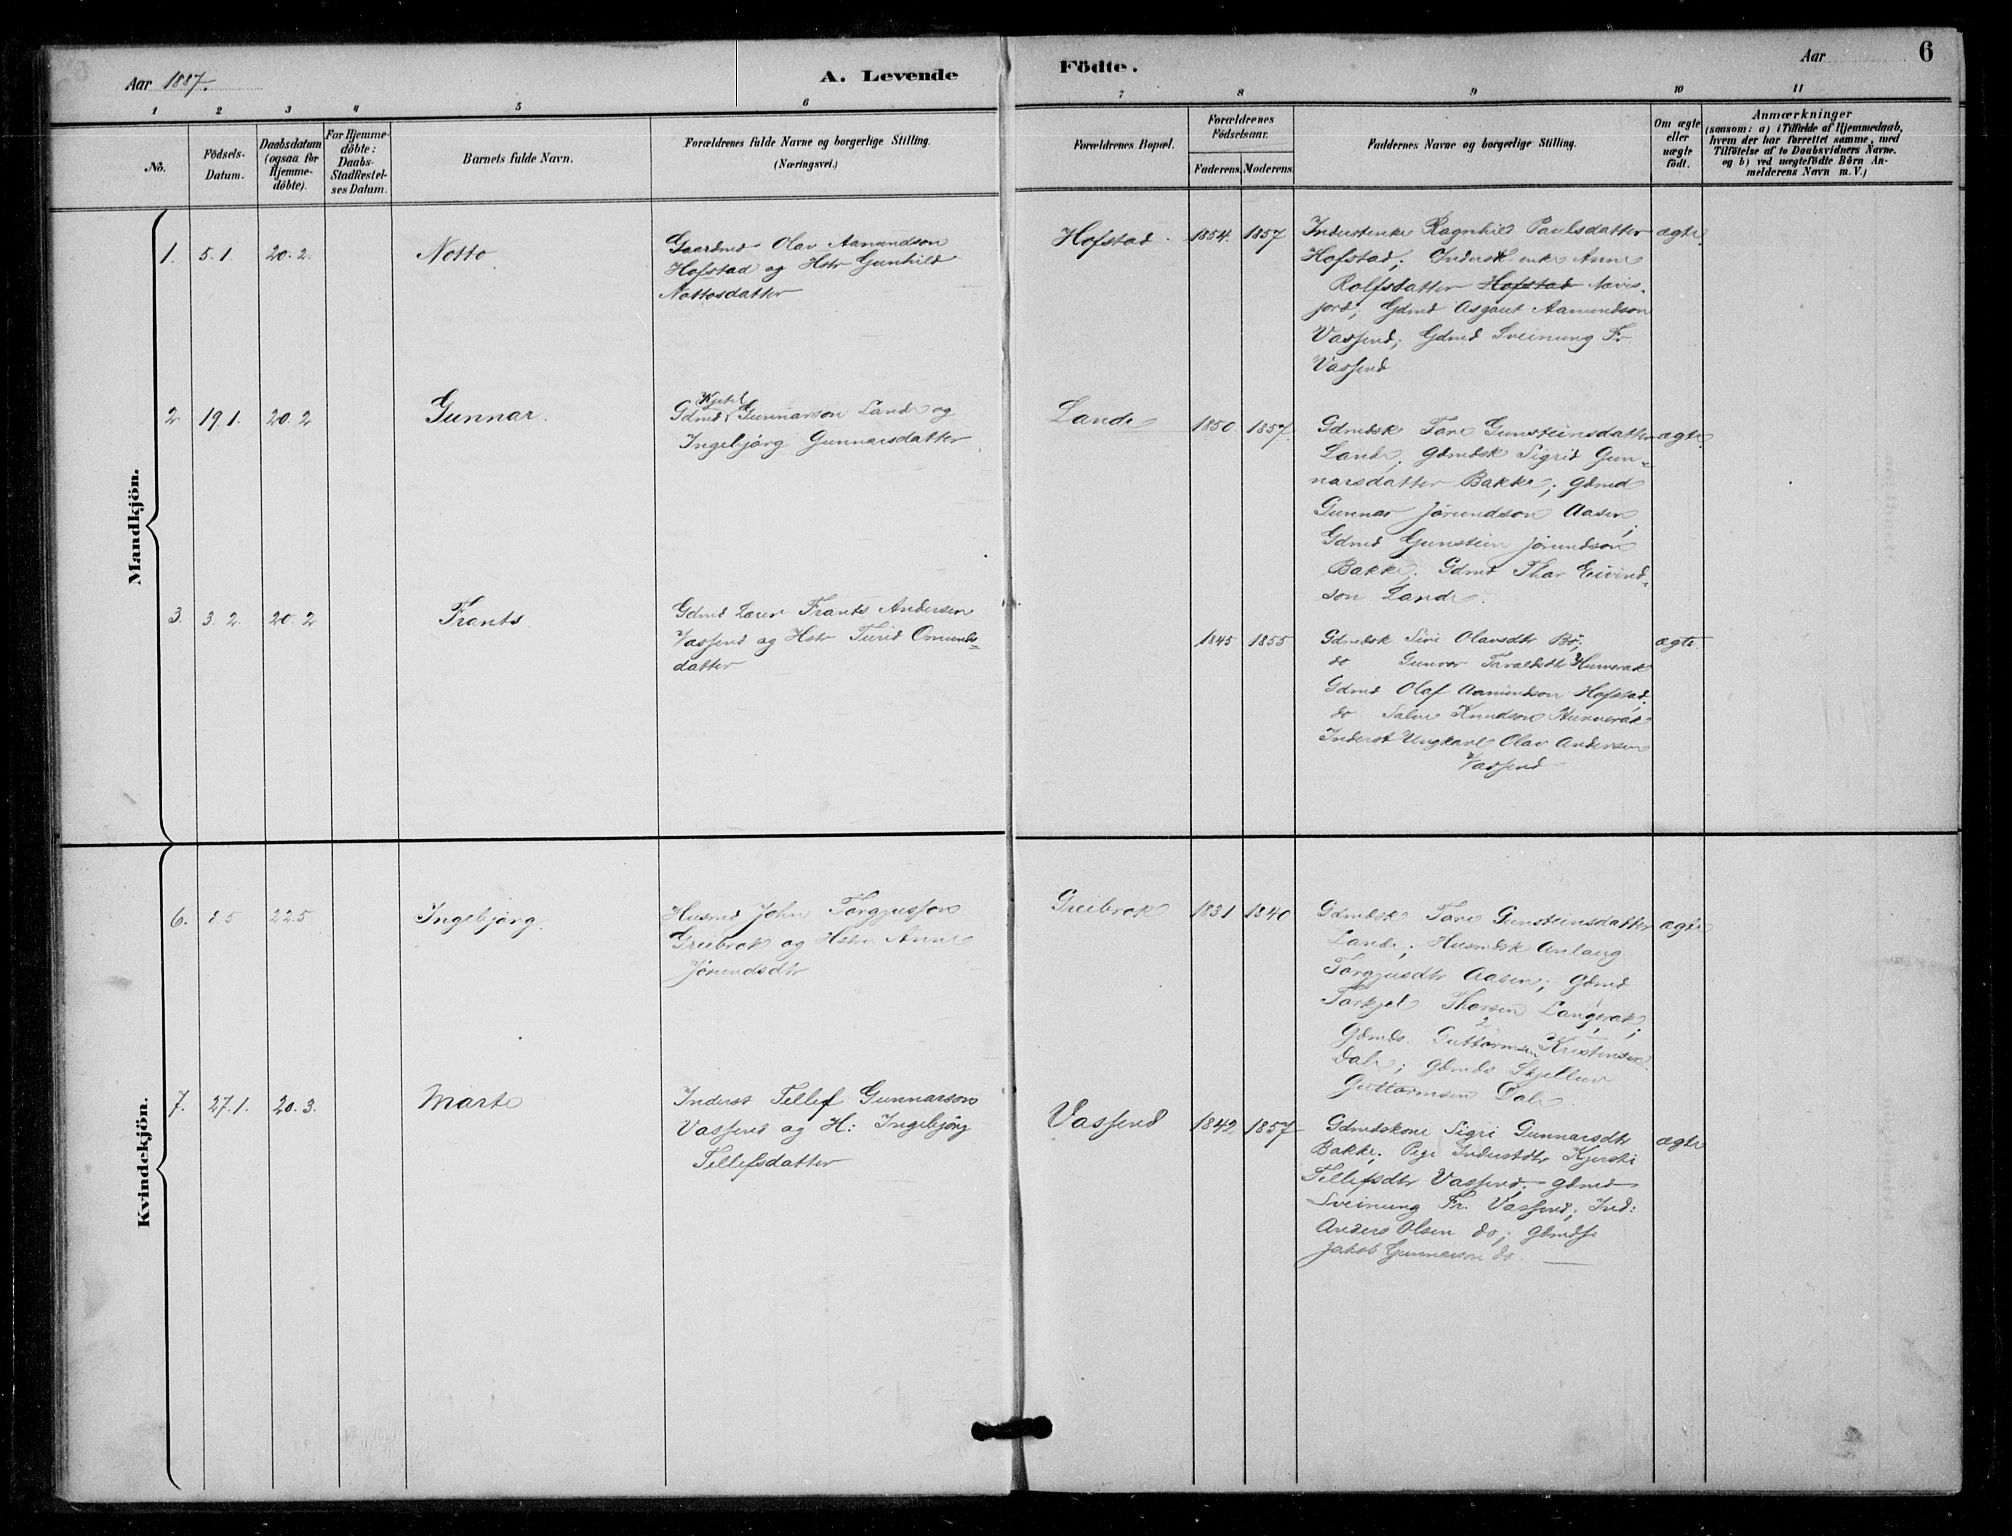 Aar 1887.
A. Levende
Födte.
Aar
6
1 2 3 4 5 6
7 8 9 10 11
No.
Födsels-
Datum.
Daabsdatum
(ogsaa for
Hjemme-
döbte).
For Hjemme-
döbte:
Daabs-
Stadfæstel-
ses Datum.
Barnets fulde Navn.
Forældrenes fulde Navne og borgerlige Stilling.
(Næringsvei.)
Forældrenes Bopæl.
Forældrenes
Födselsaar.
Faderens. Moderens.
Faddernes Navne og borgerlige Stilling.
Om ægte
eller
uægte
födt.
Anmærkninger
(saasom: a) i Tilfælde af Hjemmedaab,
hvem der har forrettet samme, med
Tilföielse af to Daabsvidners Navne.
og b) ved uægtefödte Börn An-
melderens Navn m.V.)
Mandkjön.
1. 5.1. 20.2. Notto
Gaardmd Olav Aamundson
Hofstad og Hstr Gunhild
Nottosdatter
Hofstad. 1854. 1857
Inderstenke Ragnhild Paulsdatter
Hofstad; Inderst enke Anne
Rolfsdatter Hofstad Nævis-
jord; Gdmd Asgaut Aamundson
Vassend; Gdmd Sveinung Fr
Vassend
ægte.
2 19.1. 20.2 Gunnar.
Kjetel
Gdmd Gunnarson Lande og
Ingebjørg Gunnarsdatter
Lande 1850. 1857.
Gdmdsk Tore Gunsteinsdatter
Lande; Gdmdsk Sigrid Gun-
narsdatter Bakke; Gdmd
Gunnar Jörundson Aasen;
Gdmd Gunstein Jörundson
Bakke; Gdmd Thor Eivind-
son Lande.
ægte
3. 3.2. 20.2 Frants.
Gdmd Lærer Frants Andersen
Vassend og Hstr Turid Omunds-
datter
1845 1855
Gdmdsk Siri Olavsdtr Bö;
do Gunvor Taraldsdtr Hunverak
Gdmd Olaf Aamundson Hofstad;
do Salve Knudson Hunverak
Inderst Ungkarl Olav Andersen
Vassend
ægte.
Kvindekjön.
6. 8.5 22.5 Ingebjørg.
Husmd John Torgjusson
Greibrok og Hstr Anne
Jörundsdtr
Greibrok 1831 1840
Gdmdsk Tore Gunsteinsdatter
Lande; Husmdsk Anlaug
Torgjusdtr Aasen; Gdmd
Torkjel Thorsen Langerak;
Gdmds. Guttormsen Kristensen
Dale; Gdmds Skjelluv
Guttormsen Dale
ægte
7. 27.1. 20.3. Marte
Inderst Tellef Gunnarson
Vassend og H: Ingebjörg
Tellefsdatter
Vassend 1842 1857
Gdmdskone Sigri Gunnarsdtr
Bakke; Pige Inderstdtr Kjersti
Tellefsdtr Vassend; Gdmd
Sveinung Fr. Vassend; Ind:
Anders Olsen do; Gdmds
Jakob Gunnarson do.
ægte